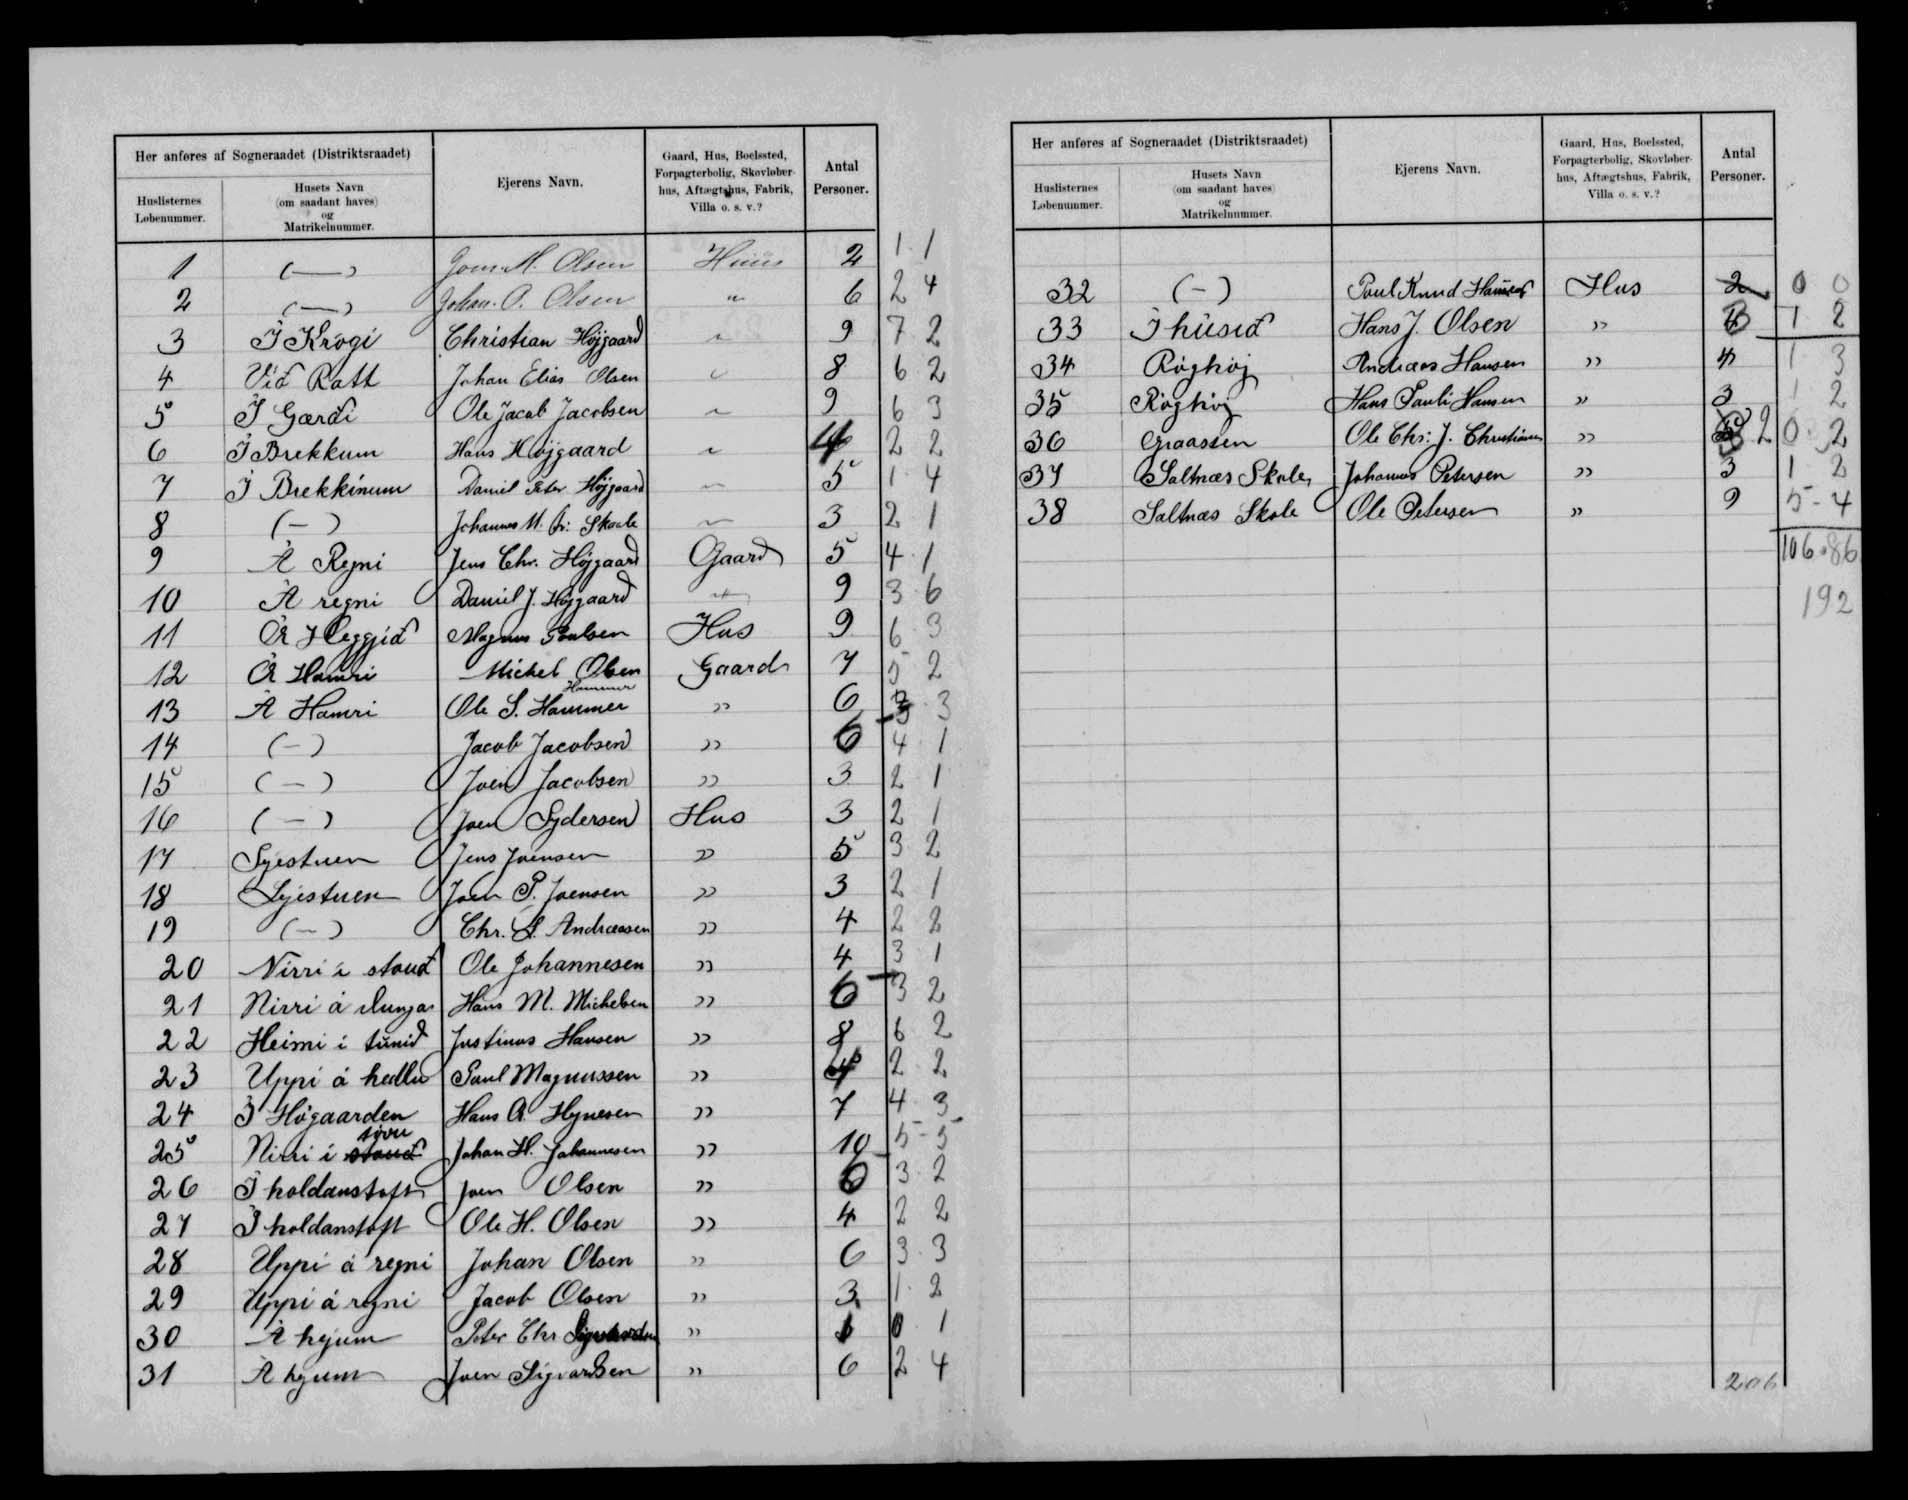 Her anføres af Sogneraadet (Distriktsraadet)
Huslisternes Løbenummer. | Husets Navn (om saadant haves) og Matrikelnummer. | Ejerens Navn. | Gaard, Hus, Boelssted, Forpagterbolig, Skovløberhus, Aftægtshus, Fabrik, Villa o. s. v.? | Antal Personer.
1 (—) Joen M. Olsen Huus 2 1 1
2 (—) Johan. P. Olsen " 6 2 4
3 I Krogi Christian Højgaard " 9 7 2
4 Við Ratt Johan Elias Olsen " 8 6 2
5 I Gærdi Ole Jacob Jacobsen " 9 6 3
6 I Brekkum Hans Højgaard " 4 2 2
7 I Brekkinum Daniel Peter Højgaard " 5 1 4
8 (—) Johannes M. Skaale " 3 2 1
9 Á Regni Jens Chr. Højgaard Gaard 5 4 1
10 Á regni Daniel J. Højgaard " 9 3 6
11 Á Heggjið Magnus Poulsen Hus 9 6 3
12 Á Hamri Michel Olsen Gaard 7 5 2
Hammer
13 Á Hamri Ole S. Hammer " 6 3 3
14 (—) Jacob Jacobsen " 6 4 1
15 (—) Joen Jacobsen " 3 2 1
16 (—) Joen Sydersen Hus 3 2 1
17 Syestuen Jens Joensen " 5 3 2
18 Lyestuen Joen P. Joensen " 3 2 1
19 (—) Chr. Andreasen " 4 2 2
20 Nirri i stouð Ole Johannesen " 4 3 1
21 Nirri á Hans M. Michelsen " 6 3 2
22 Heimi i túnið Justinus Hansen " 8 6 2
23 Uppi á hallu Paul Magnussen " 4 2 2
24 I Høgaarden Hans A. Hynesen " 7 4 3
25 Nirri i stouð Johan H. Johannesen " 10 5 5
26 I holdanstoft Joen Olsen " 6 3 2
27 I holdanstoft Ole H. Olsen " 4 2 2
28 Uppi á regni Johan Olsen " 6 3 3
29 Uppi á regni Jacob Olsen " 3 1 2
30 Á hejum Peter Chr " 1 0 1
31 Á hejum Joen Sigvardsen " 6 2 4
Her anføres af Sogneraadet (Distriktsraadet)
Huslisternes Løbenummer. | Husets Navn (om saadant haves) og Matrikelnummer. | Ejerens Navn. | Gaard, Hus, Boelssted, Forpagterbolig, Skovløberhus, Aftægtshus, Fabrik, Villa o. s. v.? | Antal Personer.
32 (—) Poul Knud Hansen Hus 2 0 0
33 I húsið Hans J. Olsen " 3 1 2
34 Røghøj Andreas Hansen " 4 1 3
35 Røghøj Hans Pauli Hansen " 3 1 2
36 Graasten Ole Chr: J. Christiansen " 2 0 2
37 Saltnæs Skole Johannes Petersen " 3 1 2
38 Saltnæs Skole Ole Petersen " 9 5-4
106 86
192
206